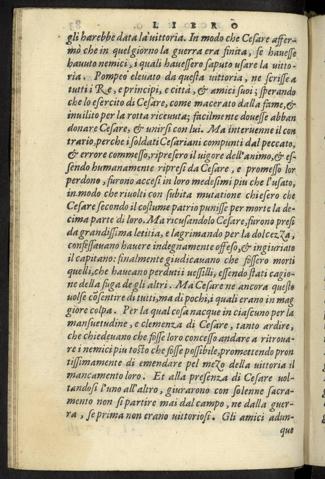 LIBRO
gli harebbe data la uittoria. In modo che Cesare affer-
mò che in quel giorno la guerra era finita, se hauesse
hauuto nemici, i quali hauessero saputo usare la uitto-
ria. Pompeo eleuato da questa uittoria, ne scrisse a
tutti i Re, e principi, e città, & amici suoi; sperando
che lo esercito di Cesare, come macerato dalla fame, &
inuilito per la rotta riceuuta; facilmente douesse abban
donare Cesare, & unirsi con lui. Ma interuenne il con
trario, perche i soldati Cesariani compunti dal peccato,
& errore commesso, ripresero il uigore dell'animo, & es-
sendo humanamente ripresi da Cesare, e promesso lor
perdono, furono accesi in loro medesimi piu che l'usato,
in modo che riuolti con subita mutatione chiesero che
Cesare secondo il costume patrio punisse per morte la de-
cima parte di loro. Ma ricusandolo Cesare, furono presi
da grandissima letitia, e lagrimando per la dolcezza,
confessauano hauere indegnamente offeso, & ingiuriato
il capitano: finalmente giudicauano che fossero morti
quelli, che haueano perduti i uessilli, essendo stati cagio-
ne della fuga de gli altri. Ma Cesare ne ancora questo
uolse cõsentire di tutti, ma di pochi, i quali erano in mag
giore colpa. Per la qual cosa nacque in ciascuno per la
mansuetudine, e clemenza di Cesare, tanto ardire,
che chiedeuano che fosse loro concesso andare a ritroua-
re i nemici piu tosto che fosse possibile, promettendo pron
tissimamente di emendare pel mezo della uittoria il
mancamento loro. Et alla presenza di Cesare uol-
tandosi l'uno all'altro, giurarono con solenne sacra-
mento non si partire mai dal campo, ne dalla guer-
ra, se prima non erano uittoriosi. Gli amici adun-
que